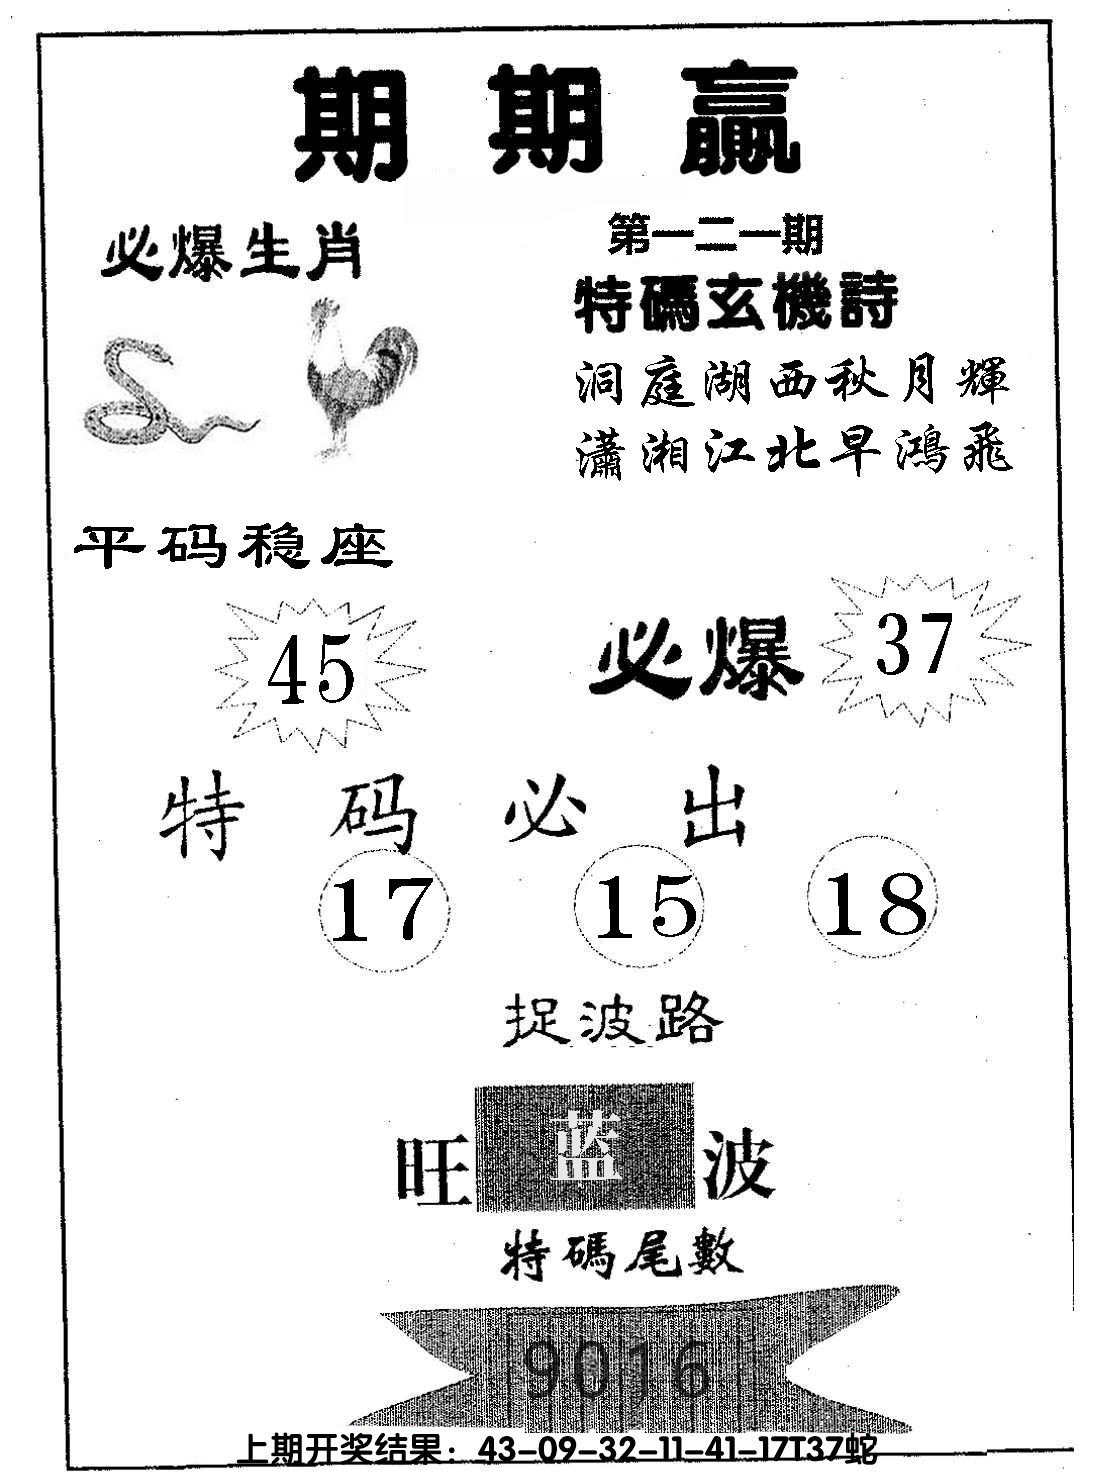 期期贏
必爆生肖
第一二一期
特碼玄機詩
洞庭湖西秋月輝
瀟湘江北早鴻飛
平码稳座
45
必爆
37
特码必出
17 15 18
捉波路
旺蓝波
特碼尾數
9016
上期开奖结果：43-09-32-11-41-17T37蛇